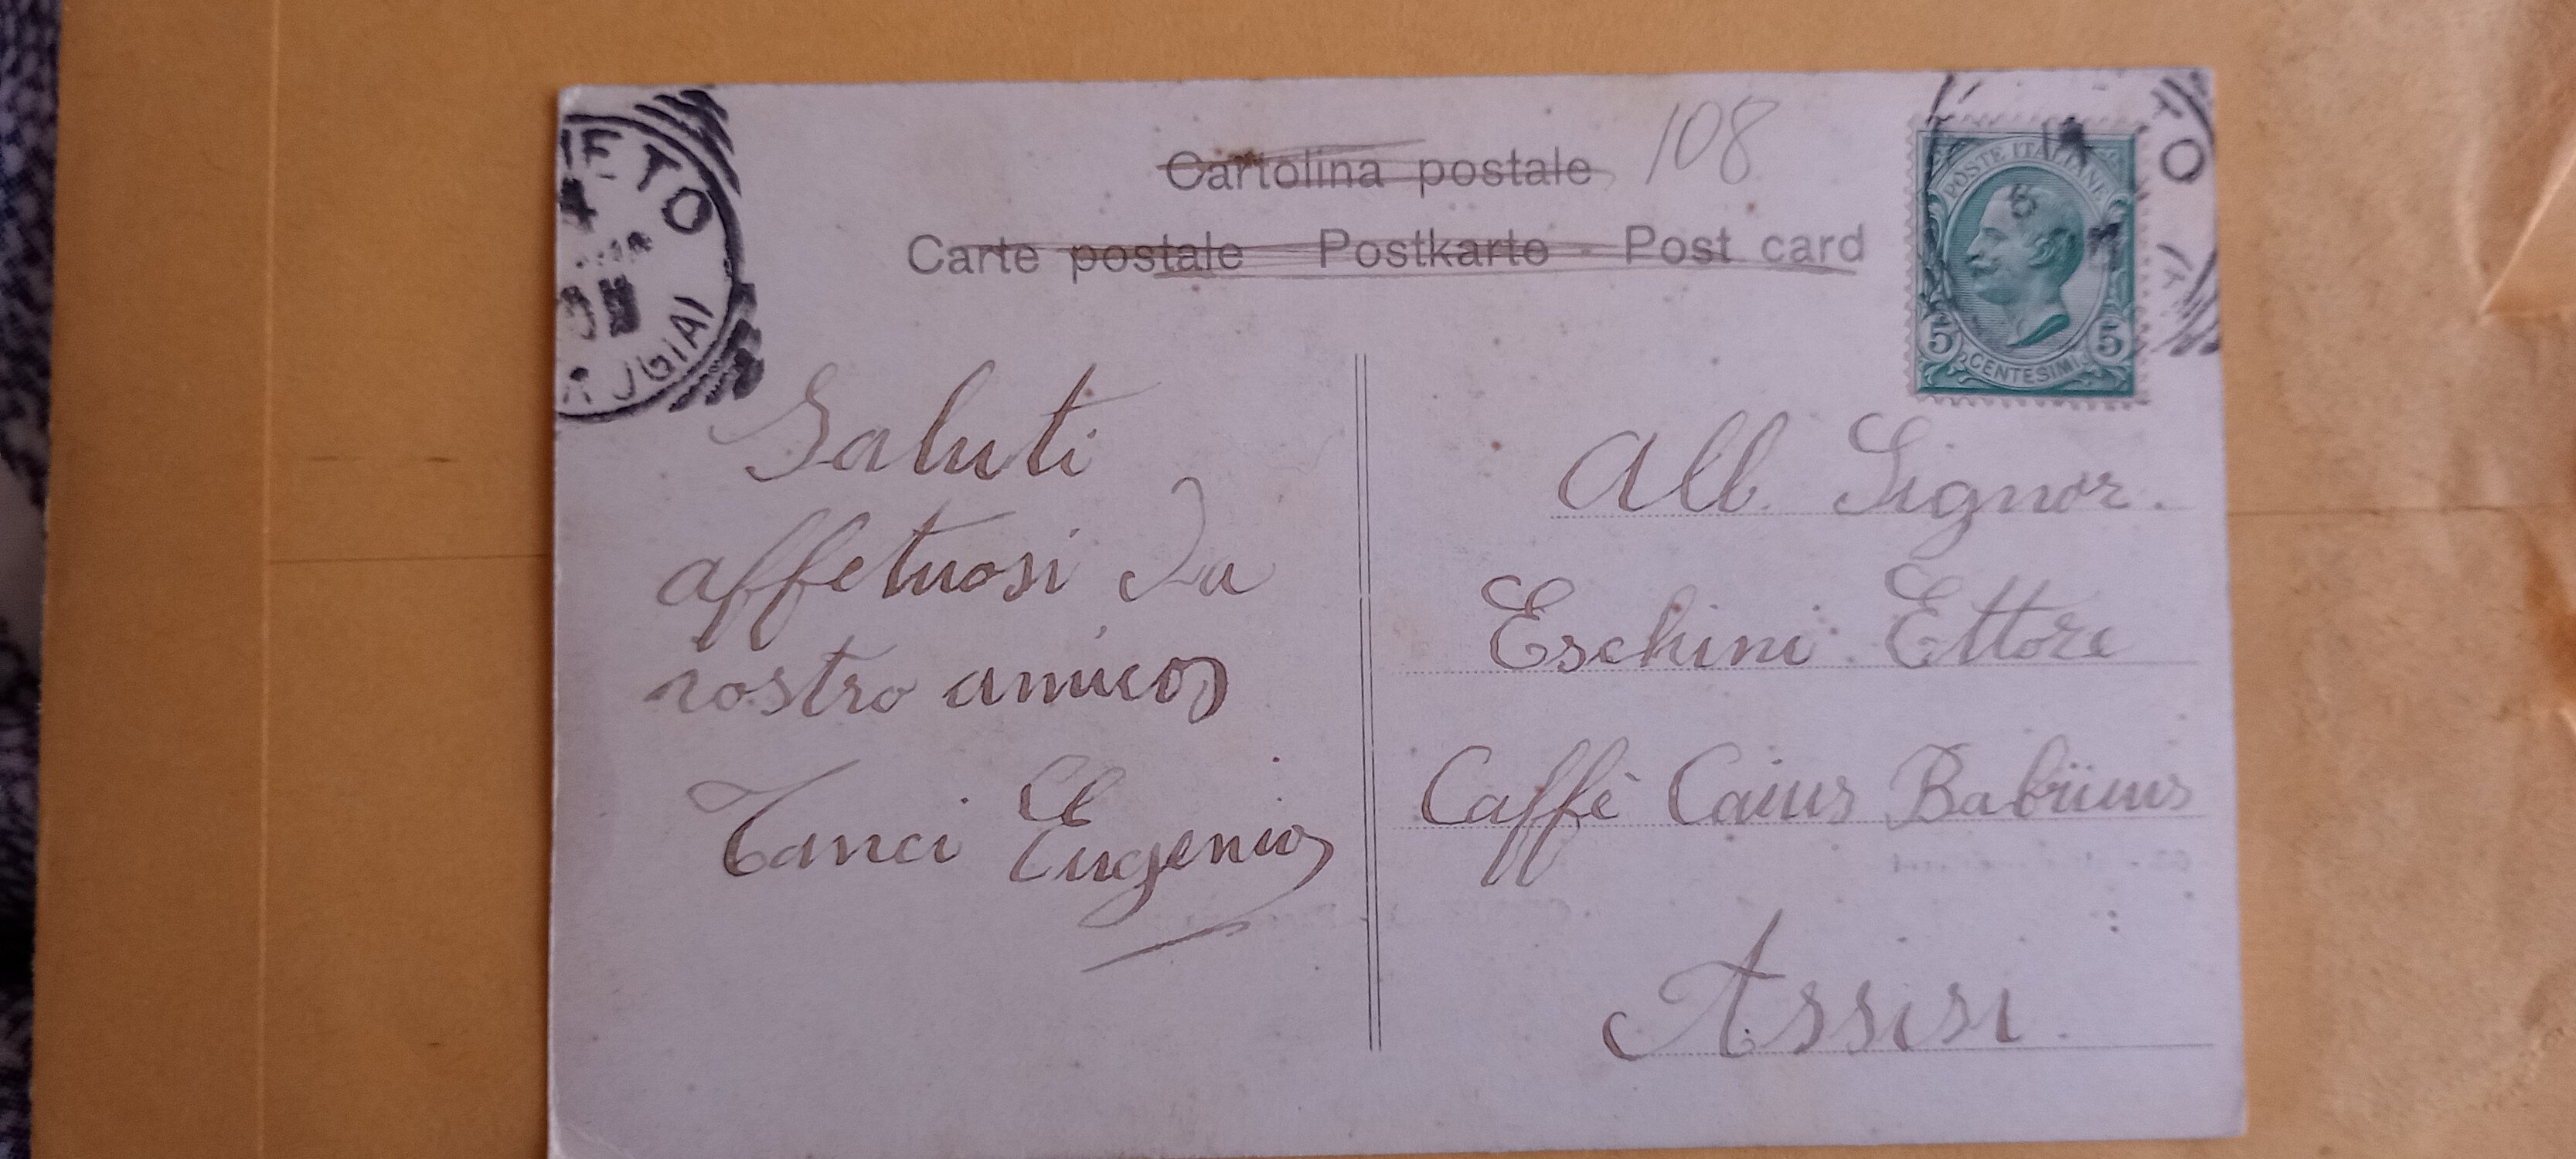 Cartolina postale 108
Carte postale Postkarte - Post card
POSTE ITALIANE
5 CENTESIMI 5
Saluti
affetuosi da
vostro amico
Tanci Eugenio
All. Signor.
Eschini Ettore
Caffè Caius
Assisi.